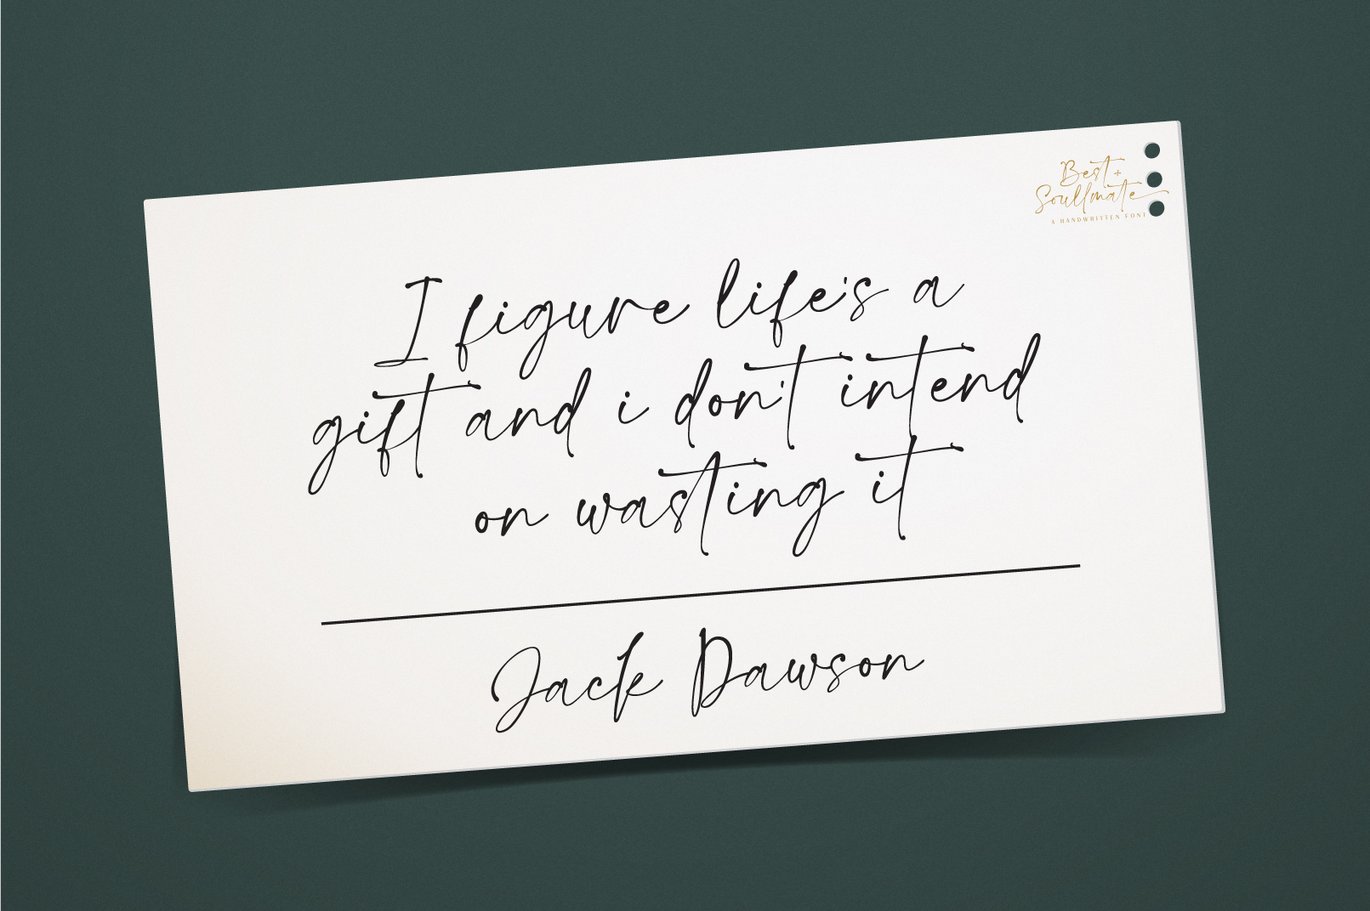 Best +
Soullmate
A HANDWRITTEN FONT
I figure life's a
gift and i don't intend
on wasting it
Jack Dawson